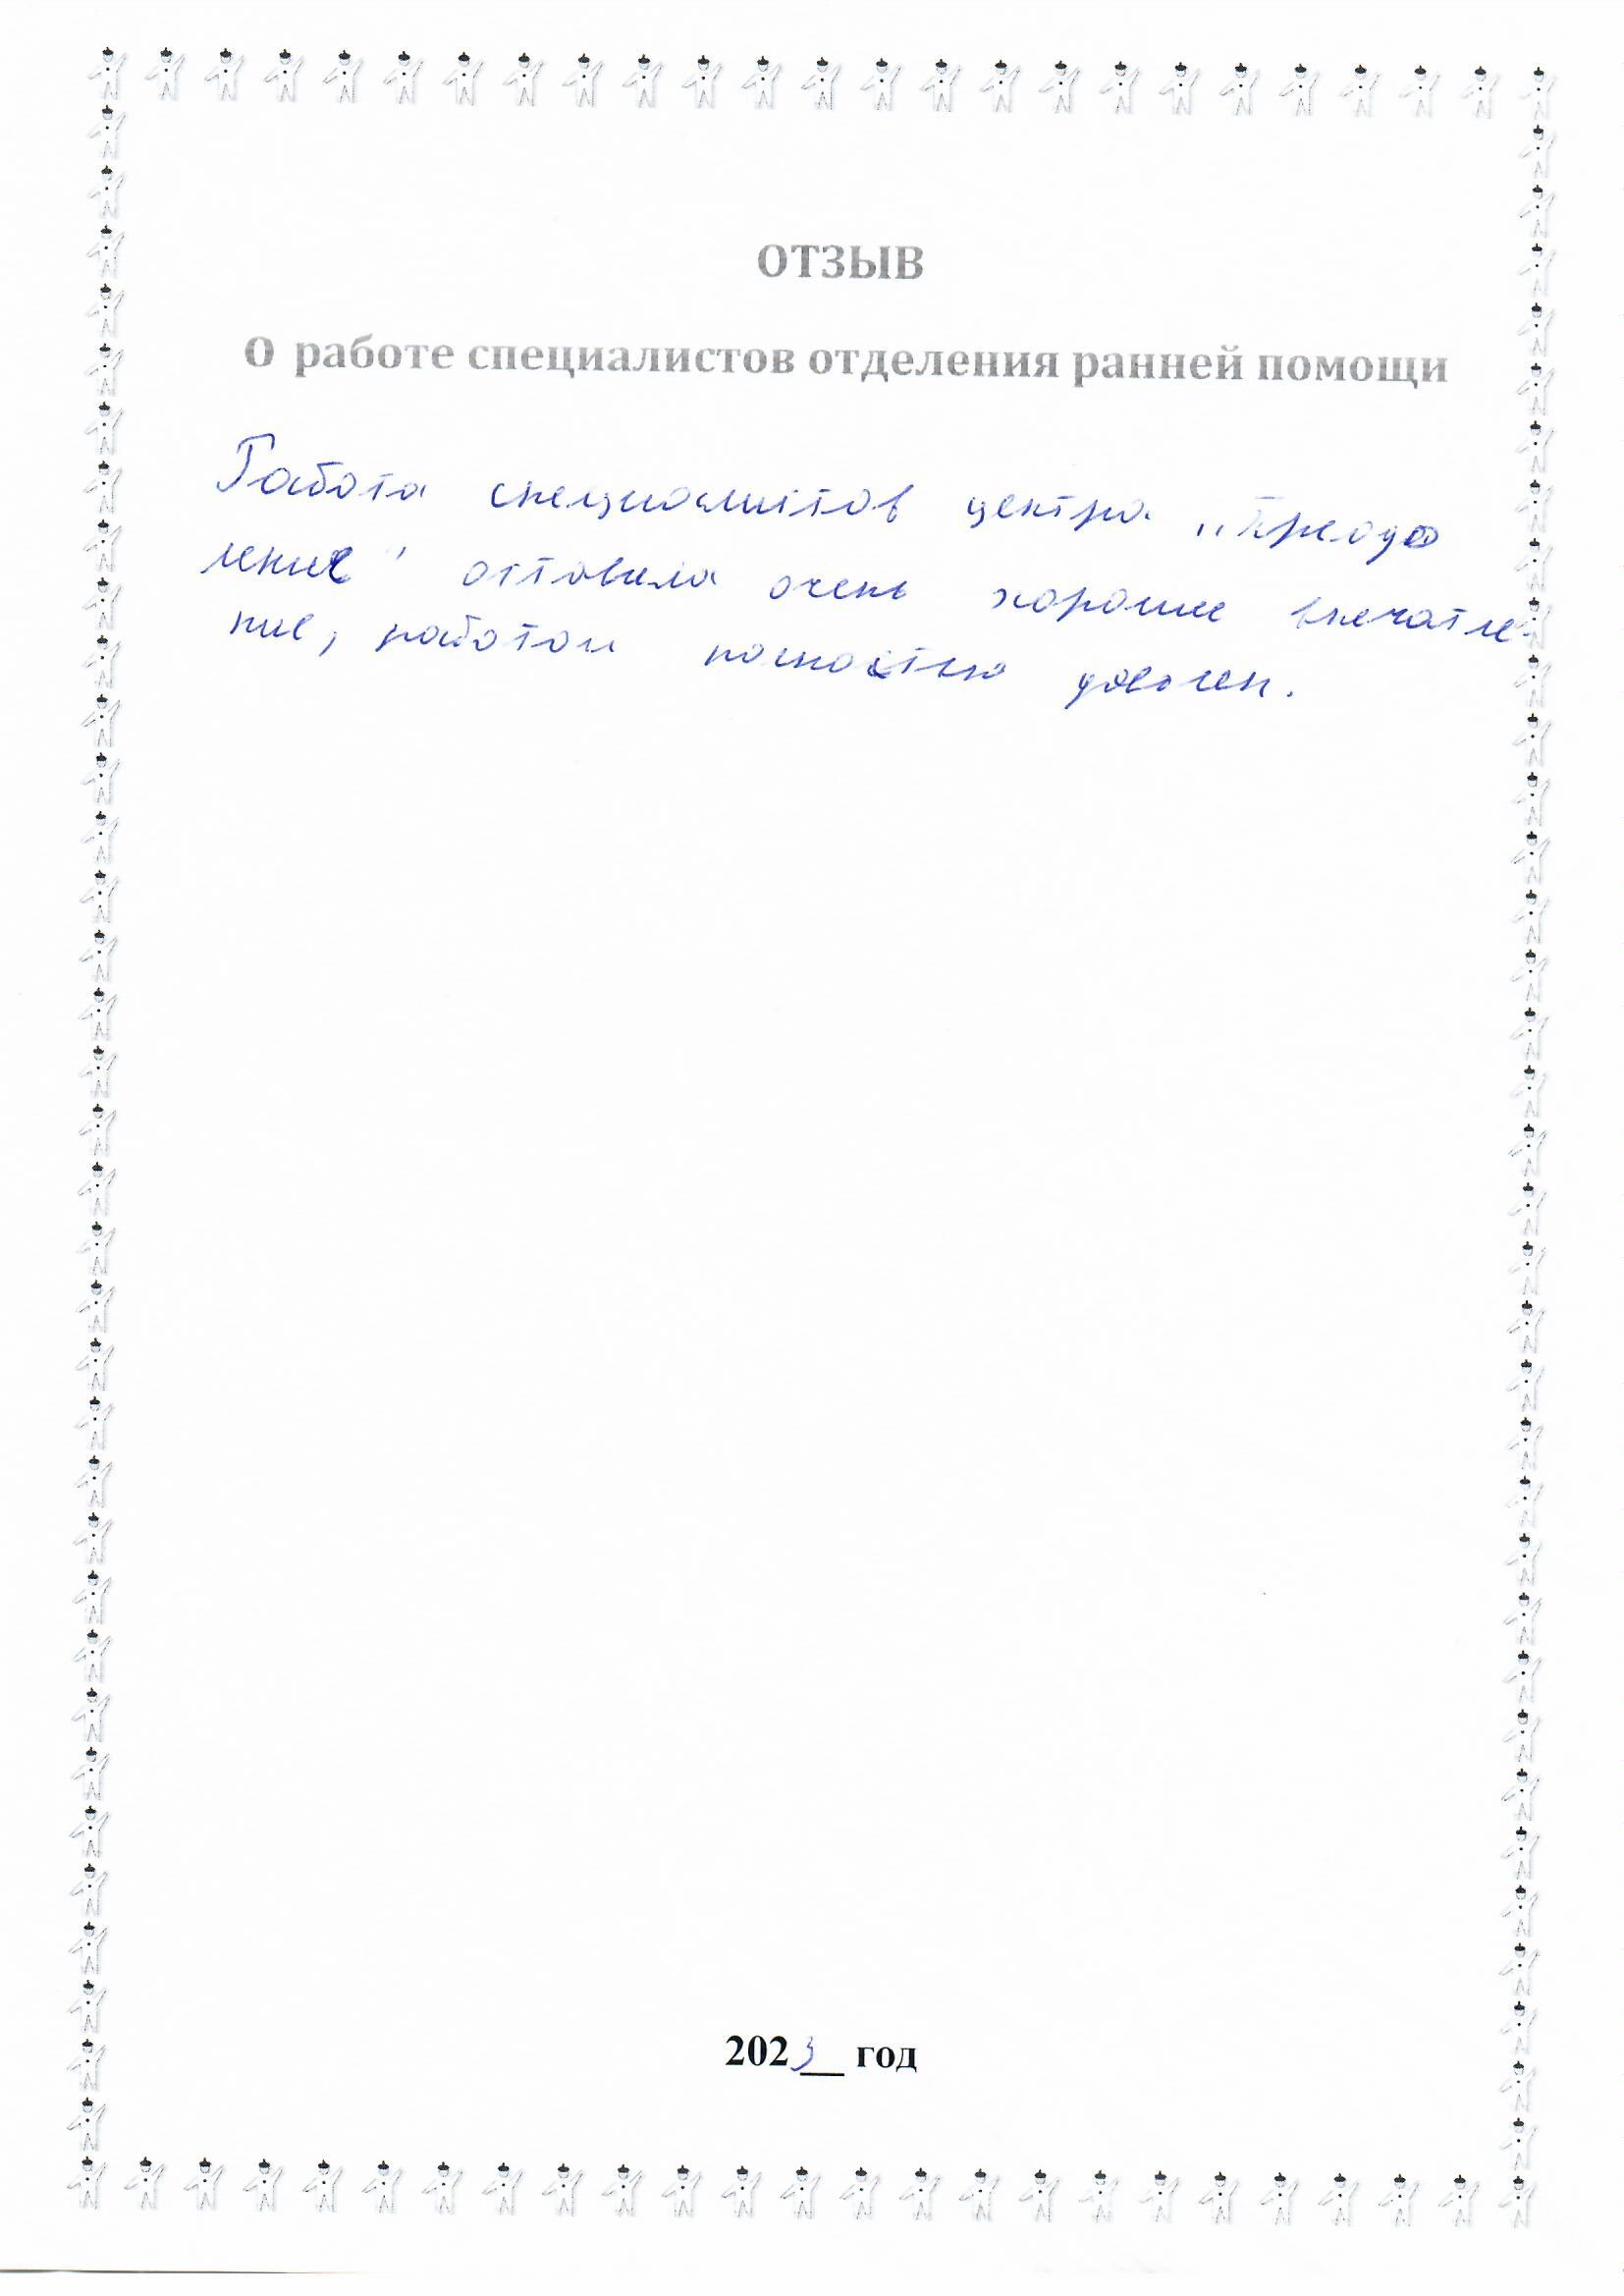 ОТЗЫВ
О работе специалистов отделения ранней помощи
Работа специалистов центра „Преодо
ление" оставила очень хорошее впечатле-
ние, работой полностью доволен.
2023 год